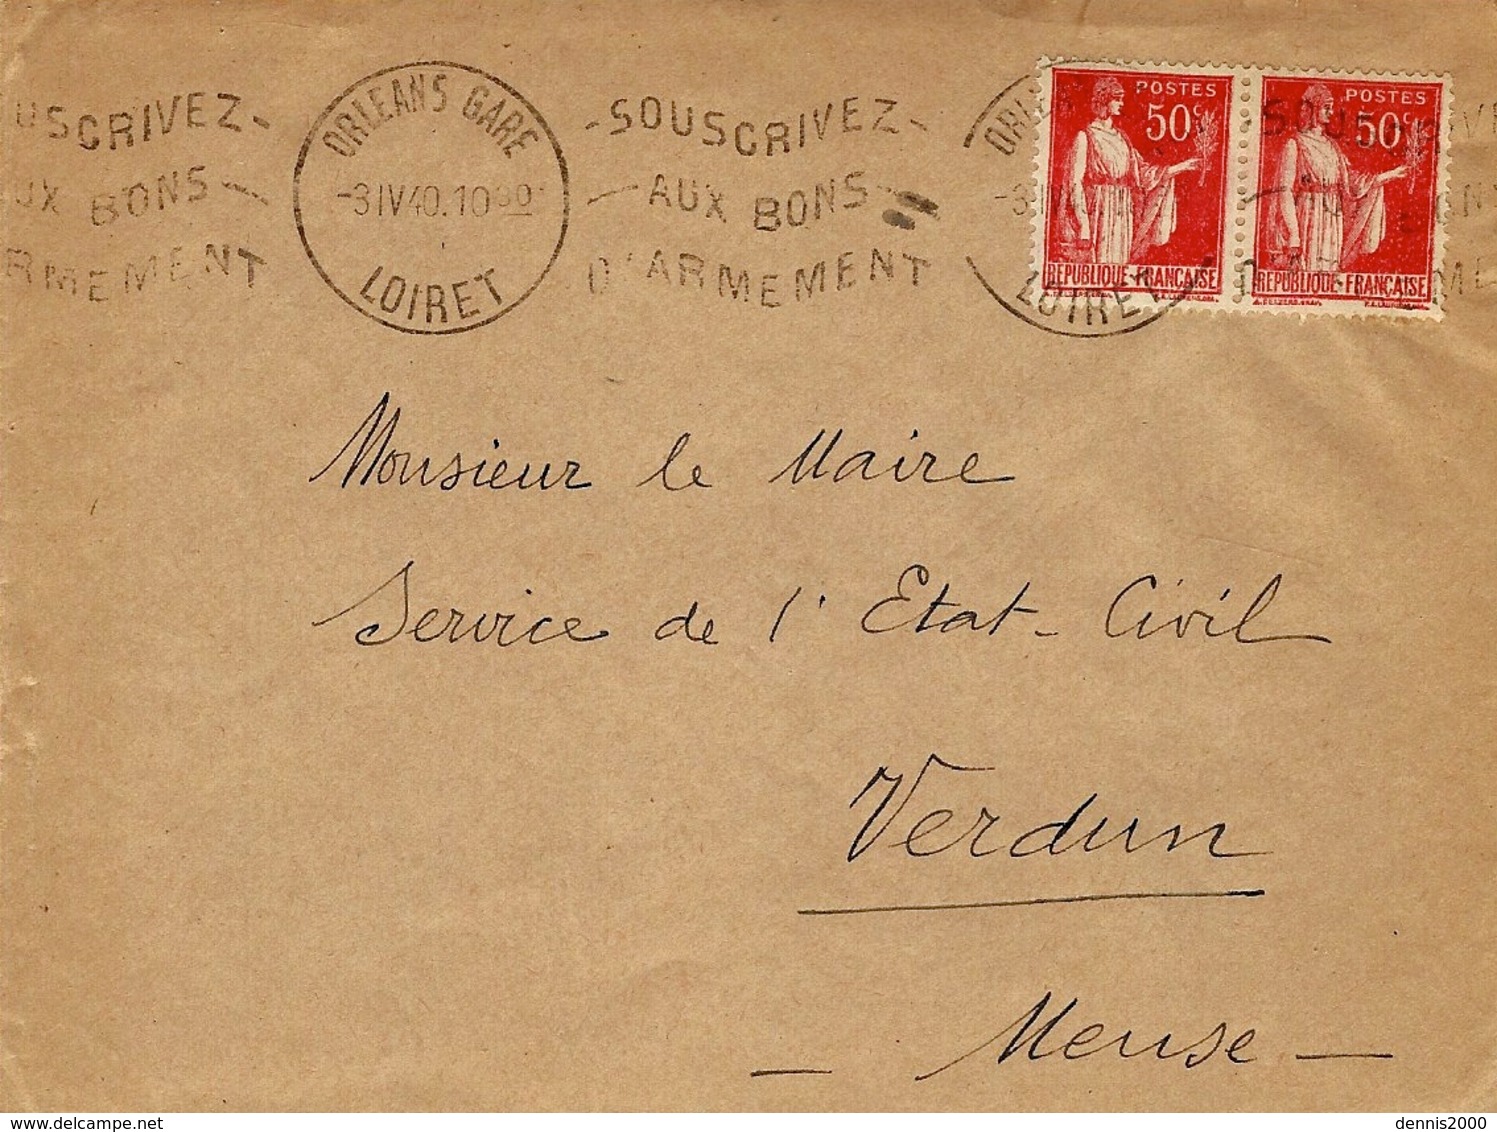 USCRIVEZ-
UX BONS-
RMEMENT
ORLEANS GARE
-3 IV 40.10
LOIRET
-SOUSCRIVEZ-
-AUX BONS-
D'ARMEMENT
LOIRET
POSTES
50c
REPUBLIQUE FRANÇAISE
POSTES
50c
REPUBLIQUE FRANÇAISE
Monsieur le Maire
Service de l'Etat-Civil
Verdun
- Meuse -
dennis2000